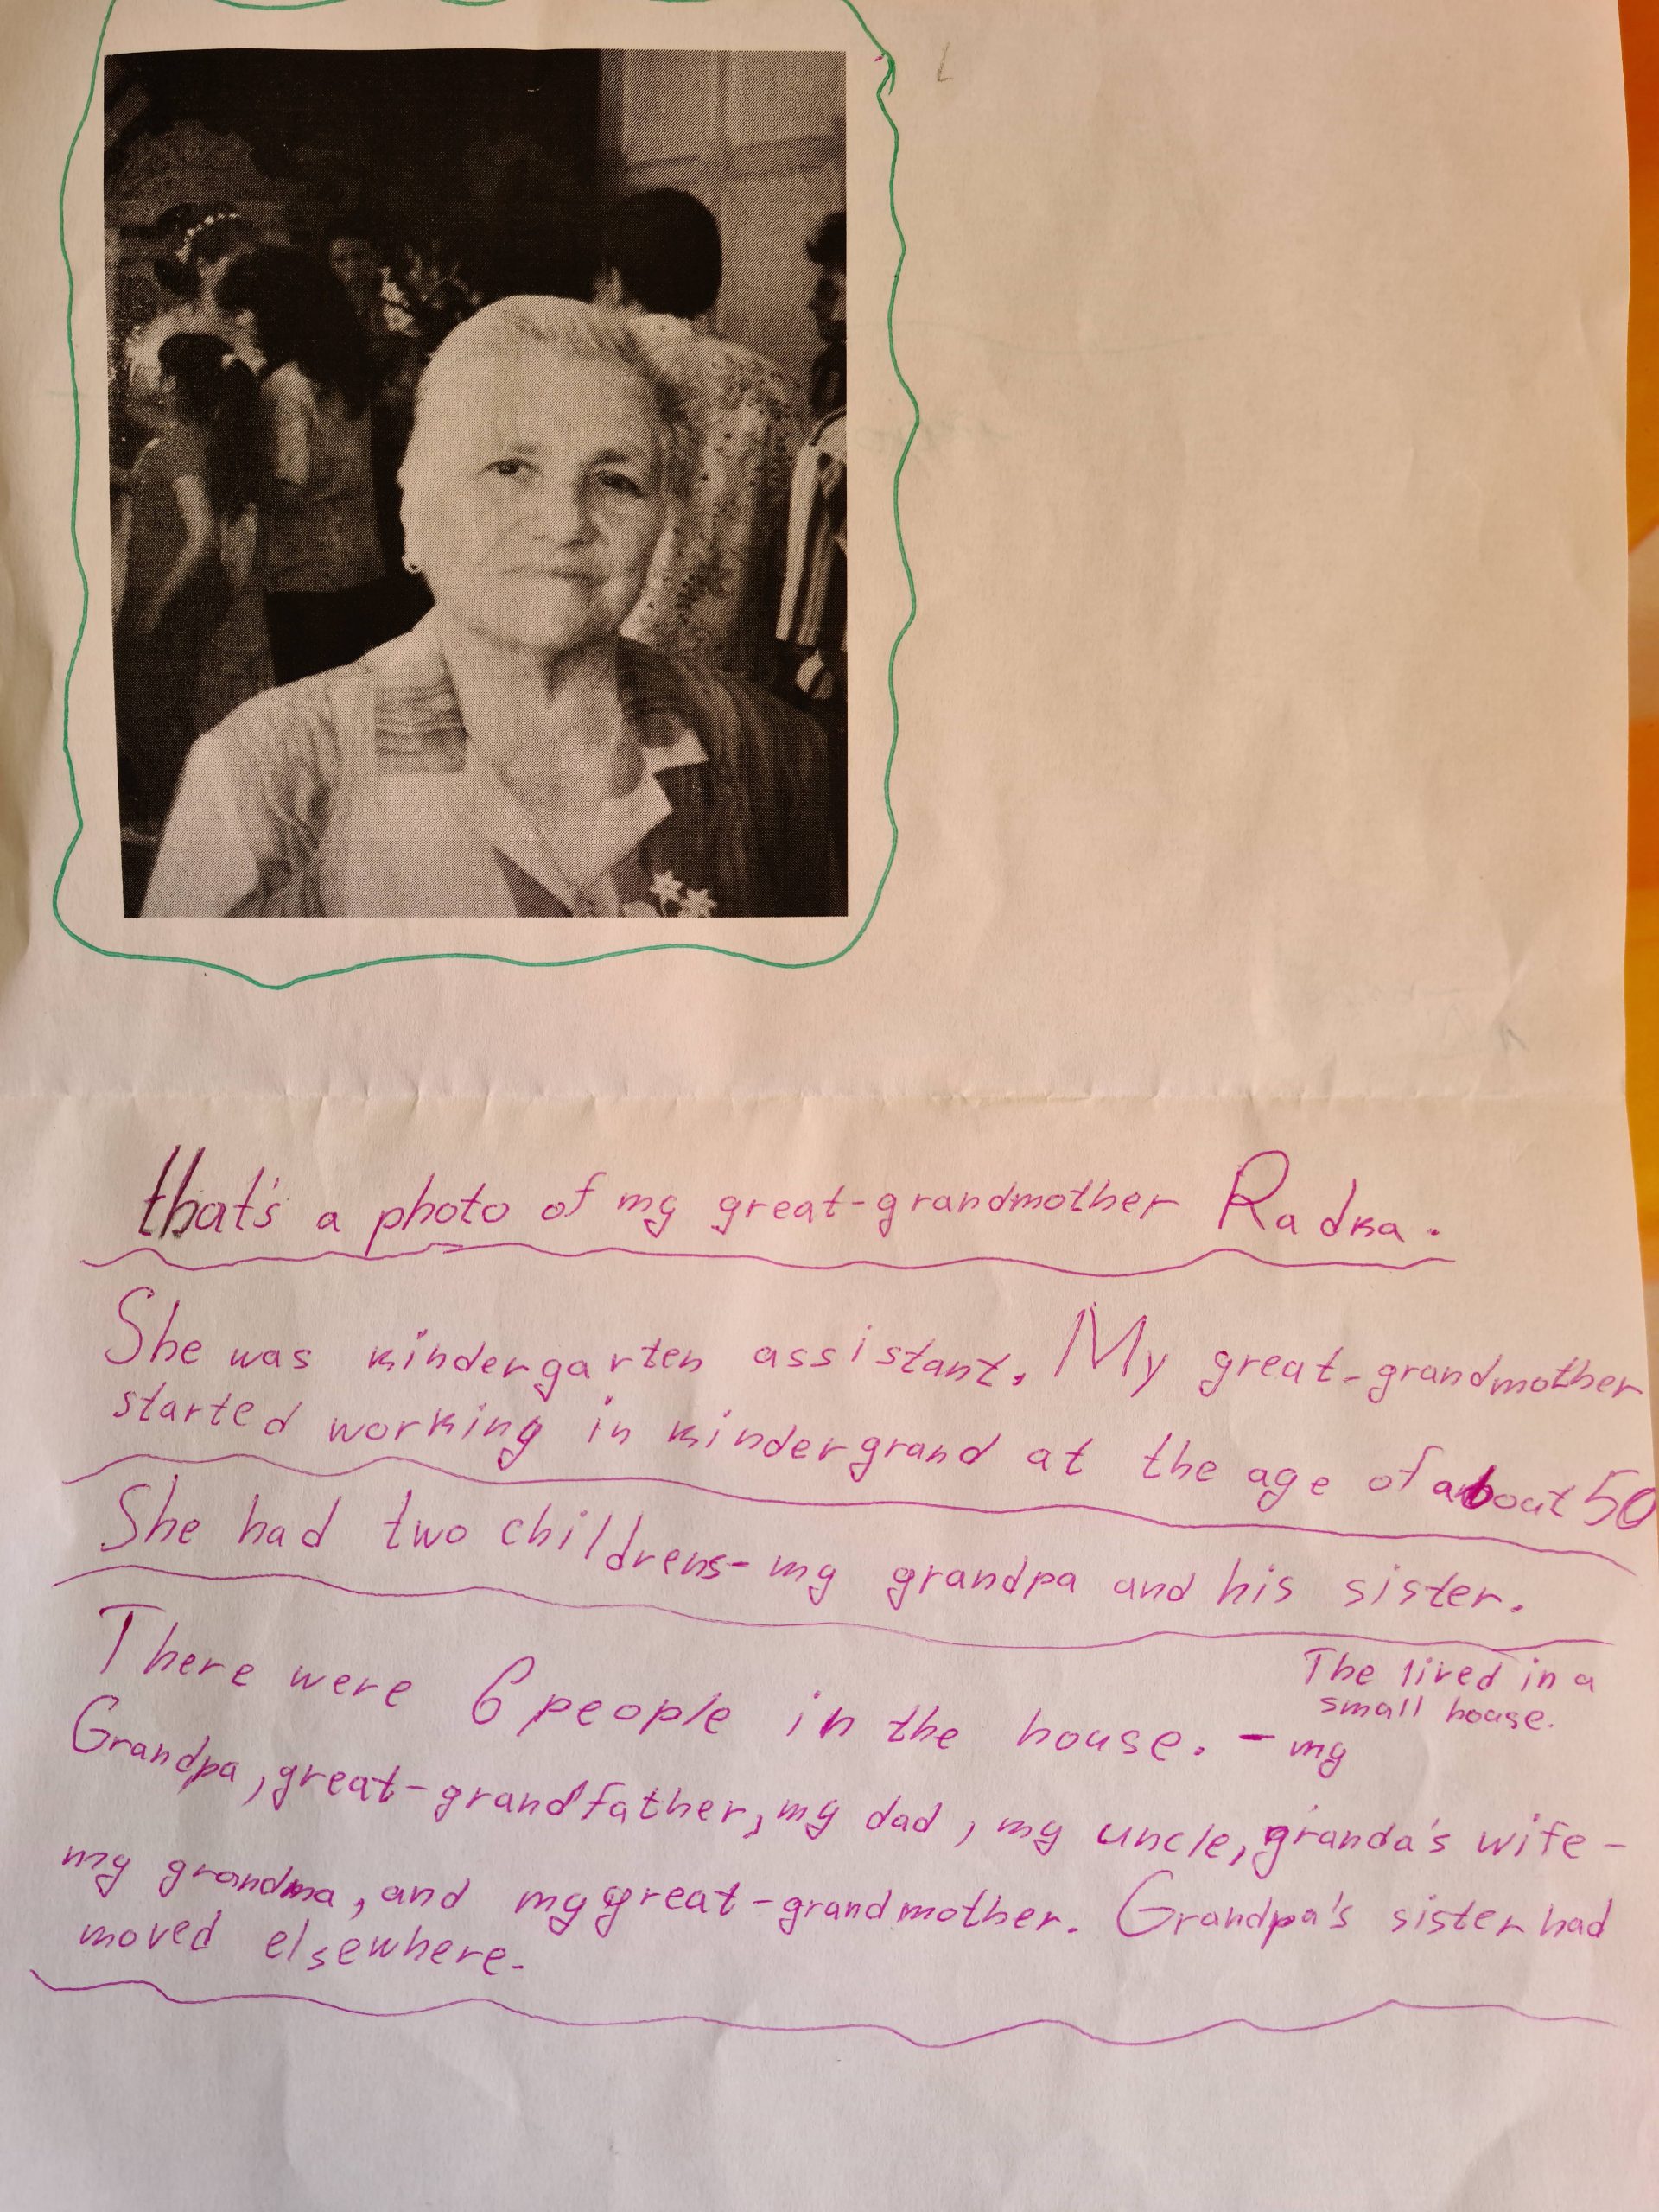 that's a photo of my great-grandmother Radka.
She was kindergarten assistant. My great-grandmother
started working in kindergrand at the age of about 50
She had two childrens- my grandpa and his sister.
The lived in a
small house.
There were 6 people in the house. - my
Grandpa, great-grandfather, my dad, my uncle, granda's wife -
my grandma, and my great-grandmother. Grandpa's sister had
moved elsewhere.